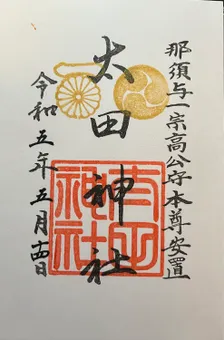 那須与一宗高公守本尊安置
太田神社
令和五年五月十四日
太田神社